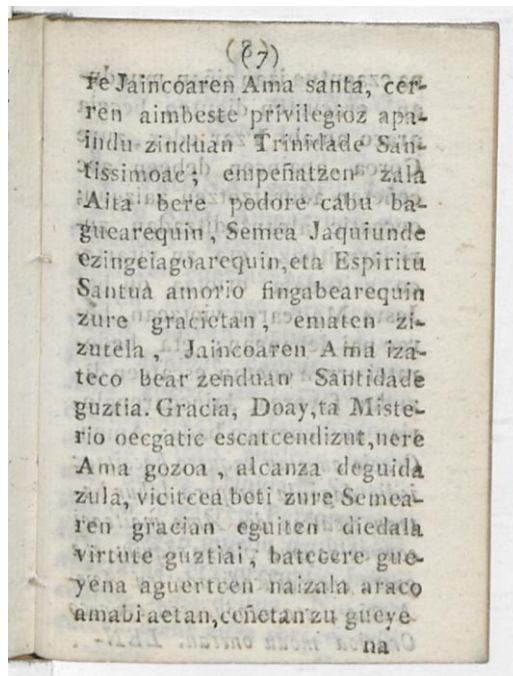 (87)
re Jaincoaren Ama santa, cer-
ren aimbeste privilegioz apa-
indu zinduan Trinidade San-
tissimoac; empeñatzen zala
Aita bere podore cabu ba-
guearequin, Semea Jaquiunde
ezingeiagoarequin, eta Espiritu
Santua amorio fingabearequin
zure gracietan, ematen zi-
zutela, Jaincoaren Ama iza-
teco bear zenduan Santidade
guztia. Gracia, Doay, ta Miste-
rio oecgatic escatcendizut, nere
Ama gozoa, alcanza deguida
zula, vicitcea beti zure Semea-
ren gracian eguiten diedala
virtute guztiai, batecere gue-
yena aguertcen naizala araco
amabi aetan, ceñetan zu gueye
na